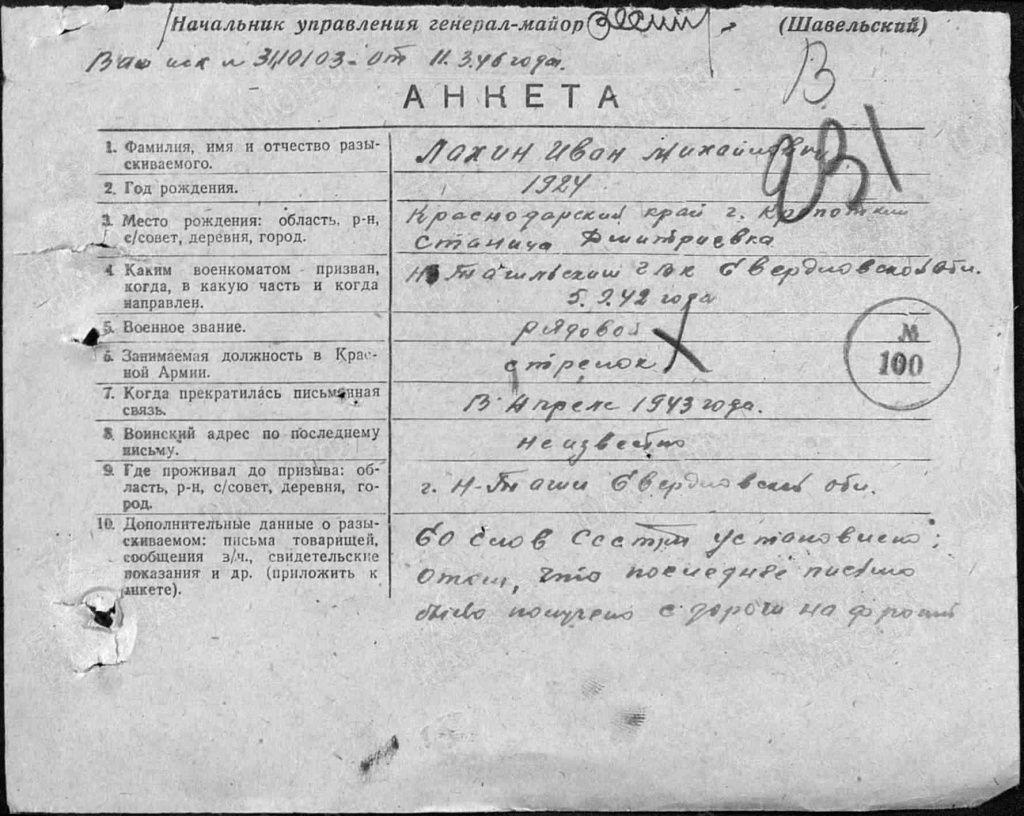 Начальник управления генерал-майор (Шавельский)
Ваш исх № 310103 - от 11.3.46 года.
В
АНКЕТА
931
1. Фамилия, имя и отчество разы-
скиваемого.
Лахин Иван Михайлович
2. Год рождения.
1924
3. Место рождения: область, р-н,
с/совет, деревня, город.
Краснодарский край г. Кропоткин
станица Дмитриевка
4. Каким военкоматом призван,
когда, в какую часть и когда
направлен.
Н Тагильский ГВК Свердловской обл.
5.9.42 года
5. Военное звание.
рядовой
6. Занимаемая должность в Крас-
ной Армии.
стрелок
№
100
7. Когда прекратилась письменная
связь.
В Апреле 1943 года.
8. Воинский адрес по последнему
письму.
неизвестно
9. Где проживал до призыва: об-
ласть, р-н, с/совет, деревня, го-
род.
г. Н-Тагил Свердловской обл.
10. Дополнительные данные о разы-
скиваемом: письма товарищей,
сообщения з/ч., свидетельские
показания и др. (приложить к
анкете).
Со слов установлено;
что последнее письмо
было получено с дороги на фронт